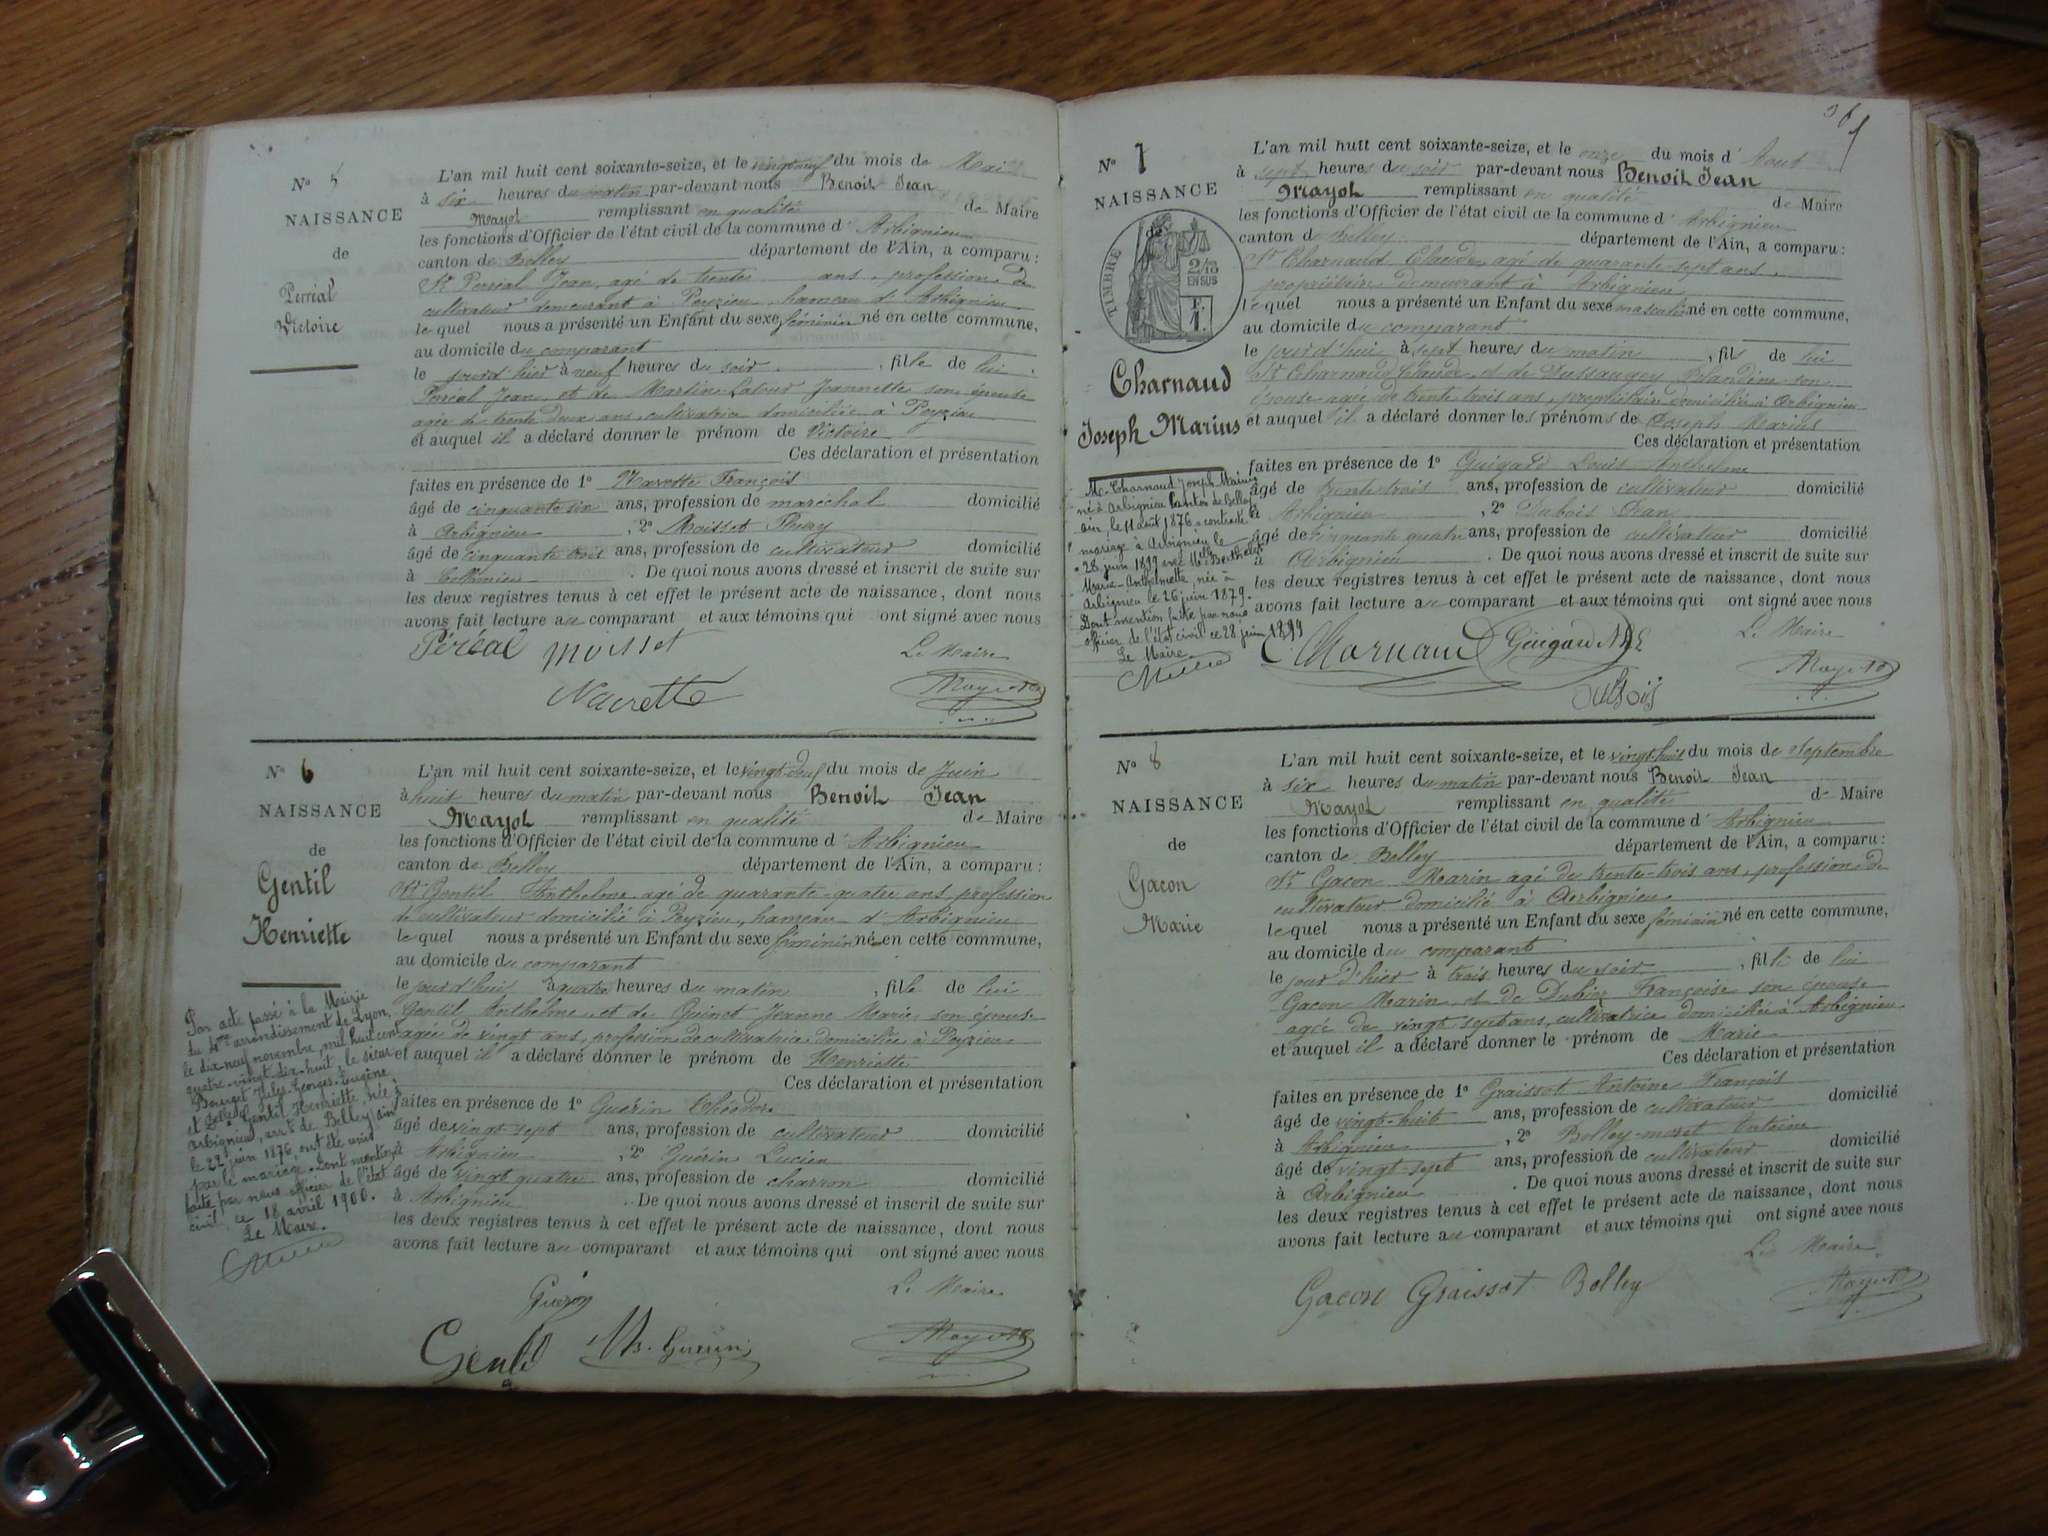 N° 5
NAISSANCE
de
Perréal
Victoire
L'an mil huit cent soixante-seize, et le vingt neuf du mois de Mai
à six heures du matin par-devant nous Benoit Jean
Mayot remplissant en qualité de Maire
les fonctions d'Officier de l'état civil de la commune d' Arbignieu
canton de Belley département de l'Ain, a comparu :
Sr Perréal Jean, agé de trente ans, profession de
cultivateur demeurant à Peyzieu, hameau d'Arbignieu
lequel nous a présenté un Enfant du sexe féminin né en cette commune,
au domicile du comparant
le jour d'hier à neuf heures du soir, fille de lui
Perréal Jean et de Martine Latour Jeannette son épouse
agée de trente deux ans, cultivatrice domiciliée à Peyzieu
et auquel il a déclaré donner le prénom de Victoire
Ces déclaration et présentation
faites en présence de 1° Navette François
âgé de cinquante six ans, profession de maréchal domicilié
à Arbignieu, 2° Moisset Thévry
âgé de cinquante trois ans, profession de cultivateur domicilié
à Collomieu. De quoi nous avons dressé et inscrit de suite sur
les deux registres tenus à cet effet le présent acte de naissance, dont nous
avons fait lecture au comparant et aux témoins qui ont signé avec nous
Péréal moisset Le Maire
Navrette Mayot
N° 6
NAISSANCE
de
Gentil
Henriette
Par acte passé à la Mairie
du 4me arrondissement de Lyon,
le dix-neuf novembre, mil huit cent
quatre-vingt-dix-huit, le sieur
Jules-Georges-Eugène
et Delle Gentil Henriette, née à
Arbignieu, arrt de Belley, ain
le 29 juin 1876, ont été unis
par le mariage. Dont mention
faite par nous officier de l'état
civil ce 18 avril 1900.
Le Maire.
L'an mil huit cent soixante-seize, et le vingt-neuf du mois de Juin
à huit heures du matin par-devant nous Benoit Jean
Mayot remplissant en qualité de Maire
les fonctions d'Officier de l'état civil de la commune d' Arbignieu
canton de Belley département de l'Ain, a comparu :
Sr Gentil Anthelme agé de quarante-quatre ans, profession
de cultivateur domicilié à Peyzieu, hameau d'Arbignieu
lequel nous a présenté un Enfant du sexe féminin né en cette commune,
au domicile du comparant
le jour d'hui à quatre heures du matin, fille de lui
Gentil Anthelme et de Guinet Jeanne Marie, son épouse
agée de vingt ans, profession de cultivatrice domiciliée à Peyzieu
et auquel il a déclaré donner le prénom de Henriette
Ces déclaration et présentation
faites en présence de 1° Guérin Théodore
âgé de vingt-sept ans, profession de cultivateur domicilié
à Arbignieu, 2° Guérin Lucien
âgé de vingt quatre ans, profession de charron domicilié
à Arbignieu. De quoi nous avons dressé et inscrit de suite sur
les deux registres tenus à cet effet le présent acte de naissance, dont nous
avons fait lecture au comparant et aux témoins qui ont signé avec nous
Guérin Le Maire
Gentil Guérin Mayot
N° 7
NAISSANCE
de
TIMBRE
2/10
EN SUS
F.
1.
Charnaud
Joseph Marius
Mr Charnaud Joseph Marius
né à Arbignieu Canton de Belley
ain le 11 août 1876 a contracté
mariage à Arbignieu le
28 juin 1899 avec Melle Berthelet
Marie-Anthelmette, née à
Arbignieu le 26 juin 1879.
Dont mention faite par nous
officier de l'état civil ce 28 juin 1899
Le Maire
L'an mil huit cent soixante-seize, et le onze du mois d' Aout
à sept heures du soir par-devant nous Benoit Jean
Mayot remplissant en qualité de Maire
les fonctions d'Officier de l'état civil de la commune d' Arbignieu
canton de Belley département de l'Ain, a comparu :
Sr Charnaud Claude, agé de quarante-sept ans,
propriétaire demeurant à Arbignieu
lequel nous a présenté un Enfant du sexe masculin né en cette commune,
au domicile du comparant
le jour d'hui à sept heures du matin, fils de lui
Sr Charnaud Claude et de Dussauger Blandine son
épouse agée de trente trois ans, propriétaire domiciliée à Arbignieu
et auquel il a déclaré donner les prénoms de Joseph Marius
Ces déclaration et présentation
faites en présence de 1° Guigard Louis Anthelme
âgé de trente-trois ans, profession de cultivateur domicilié
à Arbignieu, 2° Dubois Jean
âgé de cinquante quatre ans, profession de cultivateur domicilié
à Arbignieu. De quoi nous avons dressé et inscrit de suite sur
les deux registres tenus à cet effet le présent acte de naissance, dont nous
avons fait lecture au comparant et aux témoins qui ont signé avec nous
Charnaud Guigard Le Maire
Dubois Mayot
N° 8
NAISSANCE
de
Gacon
Marie
L'an mil huit cent soixante-seize, et le vingt-huit du mois de Septembre
à six heures du matin par-devant nous Benoit Jean
Mayot remplissant en qualité de Maire
les fonctions d'Officier de l'état civil de la commune d' Arbignieu
canton de Belley département de l'Ain, a comparu :
Sr Gacon Marin agé de trente-trois ans, profession de
cultivateur domicilié à Arbignieu
lequel nous a présenté un Enfant du sexe féminin né en cette commune,
au domicile du comparant
le jour d'hier à trois heures du soir, fille de lui
Gacon Marin et de Dubin Françoise son épouse
agée de vingt sept ans, cultivatrice domiciliée à Arbignieu
et auquel il a déclaré donner le prénom de Marie
Ces déclaration et présentation
faites en présence de 1° Graissot Antoine François
âgé de vingt-huit ans, profession de cultivateur domicilié
à Arbignieu, 2° Belley-moret Antoine
âgé de vingt-sept ans, profession de cultivateur domicilié
à Arbignieu. De quoi nous avons dressé et inscrit de suite sur
les deux registres tenus à cet effet le présent acte de naissance, dont nous
avons fait lecture au comparant et aux témoins qui ont signé avec nous
Le Maire
Gacon Graissot Belley Mayot